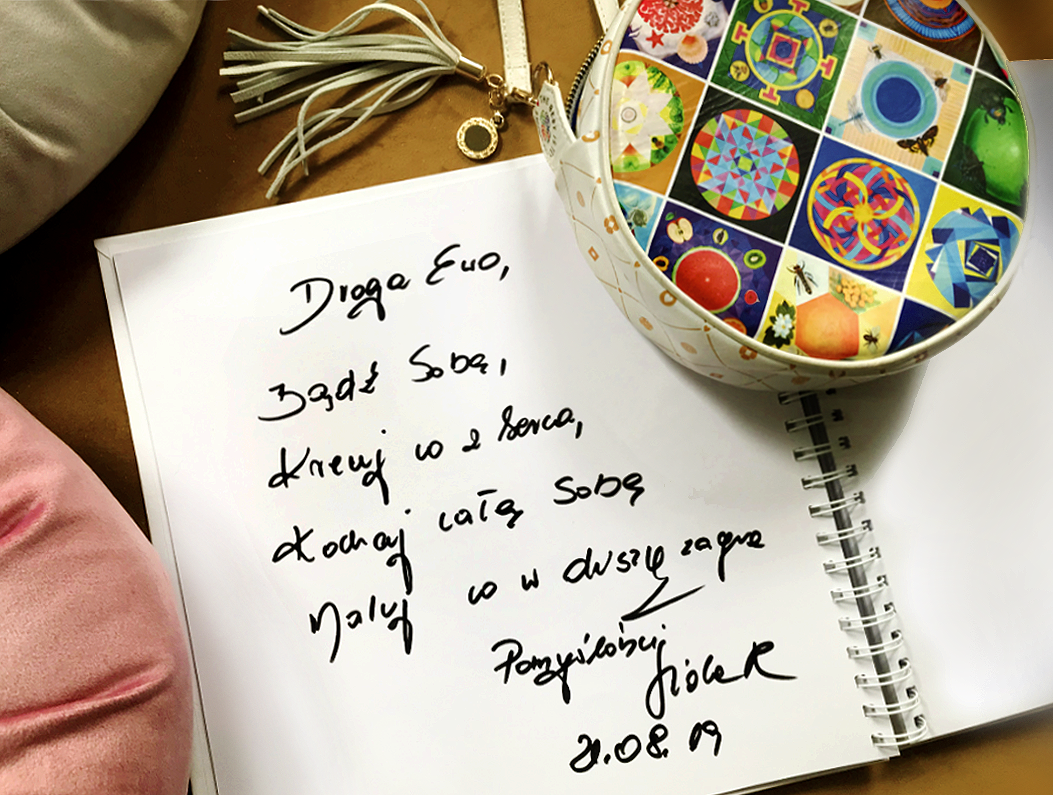 Droga Ewo,
Bądź Sobą,
Kreuj co z serca,
Kochaj całą Sobą
Maluj co w duszy zagra
Pomyślności
21.08.19